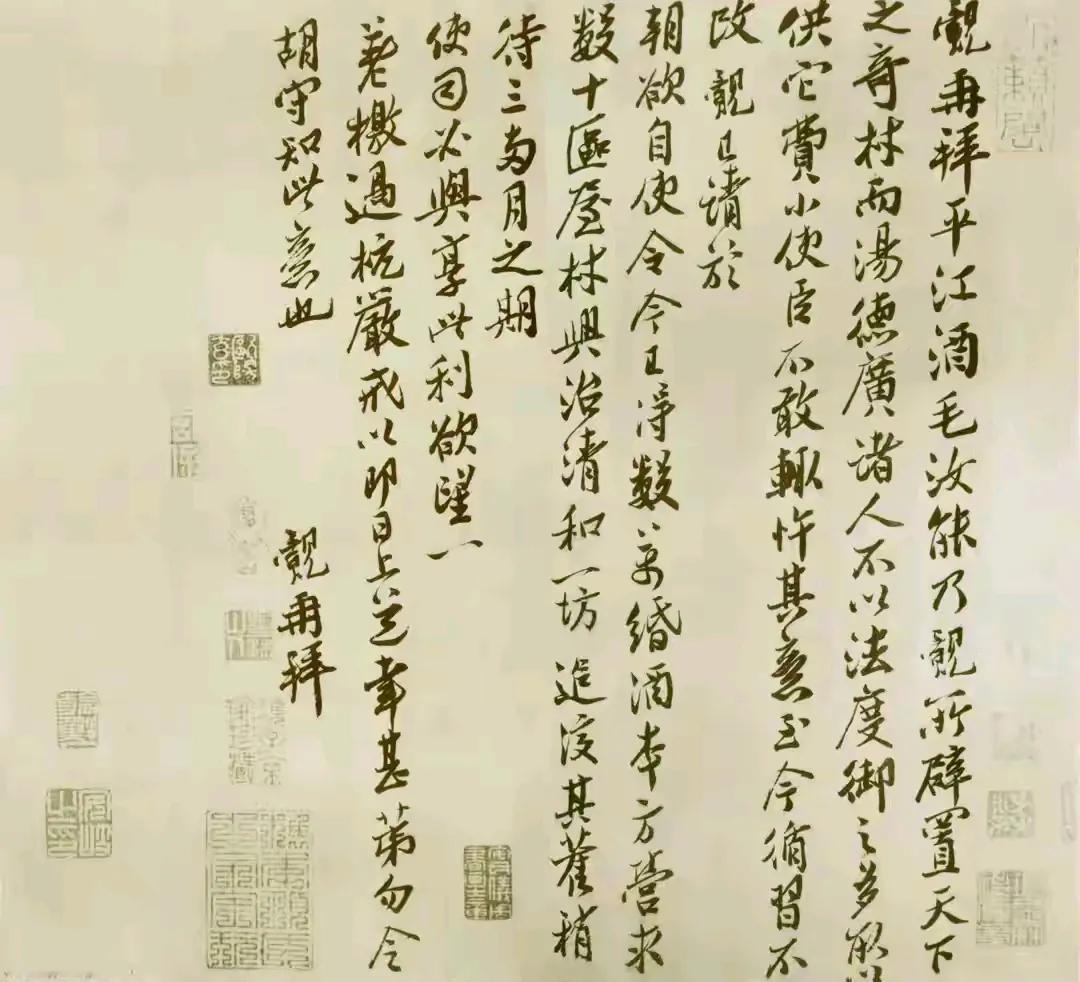 覿再拜平江酒毛汝能乃覿所辟置天下
之奇材而湯德廣諸人不以法度御之多所以
供它費小使臣不敢輒忤其意至今循習不
改覿已請於
朝欲自使令今已得數萬緡酒本方營求
數十區屋材興治清和一坊追復其舊稍
待三两月之期
使司必興享此利欲望一
差檄過杭嚴戒以即日上道幸甚第勿令
胡守知此意也
覿再拜